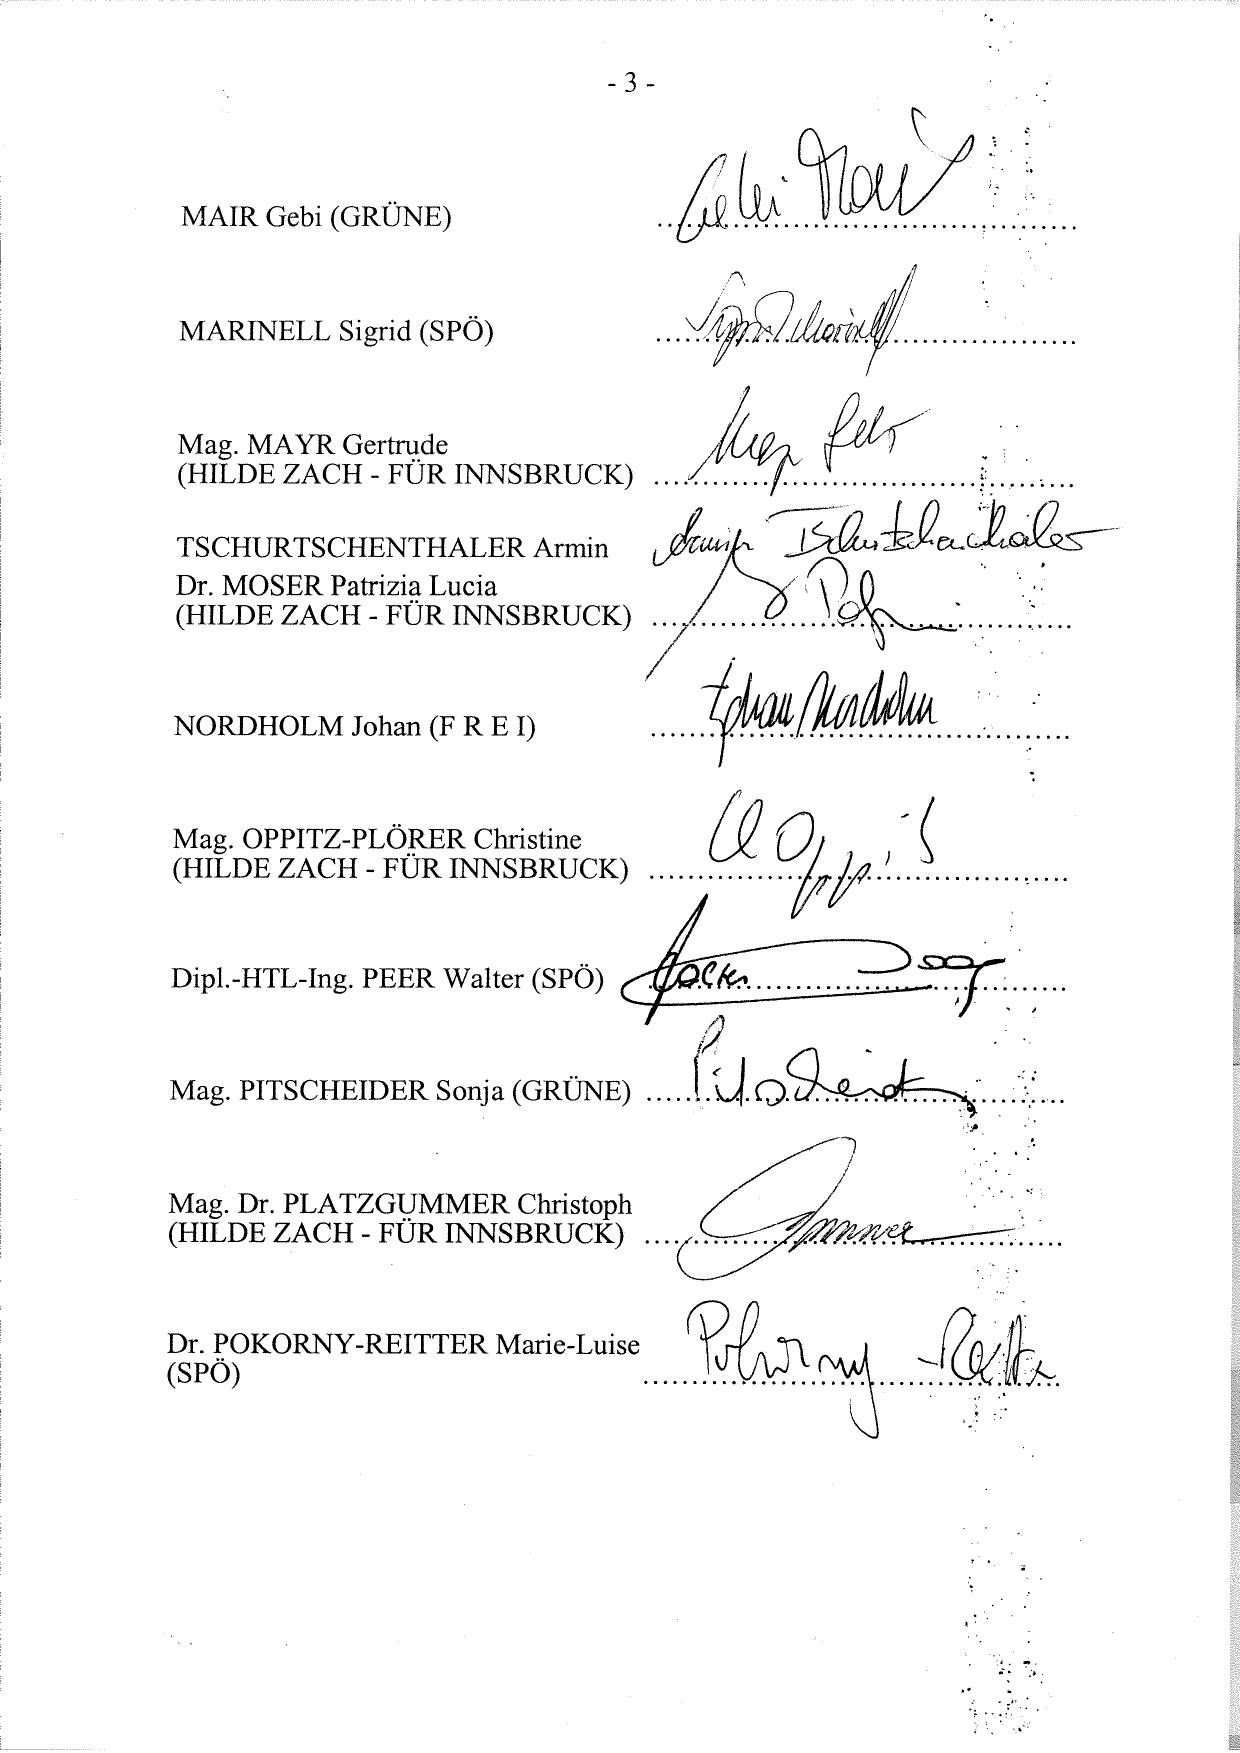 - 3 -
MAIR Gebi (GRÜNE) Gebi Mair
MARINELL Sigrid (SPÖ) Sigrid Marinell
Mag. MAYR Gertrude
(HILDE ZACH - FÜR INNSBRUCK)
TSCHURTSCHENTHALER Armin Armin Tschurtschenthaler
Dr. MOSER Patrizia Lucia
(HILDE ZACH - FÜR INNSBRUCK)
NORDHOLM Johan (F R E I) Johan Nordholm
Mag. OPPITZ-PLÖRER Christine
(HILDE ZACH - FÜR INNSBRUCK)
Dipl.-HTL-Ing. PEER Walter (SPÖ)
Mag. PITSCHEIDER Sonja (GRÜNE) Pitscheider
Mag. Dr. PLATZGUMMER Christoph
(HILDE ZACH - FÜR INNSBRUCK)
Dr. POKORNY-REITTER Marie-Luise Pokorny-Reitter
(SPÖ)